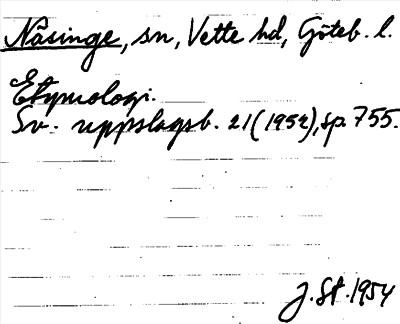 Näsinge, sn, Vette hd, Göteb. l.
Etymologi.
Sv. uppslagsb. 21 (1952), sp. 755.
J. St. 1954